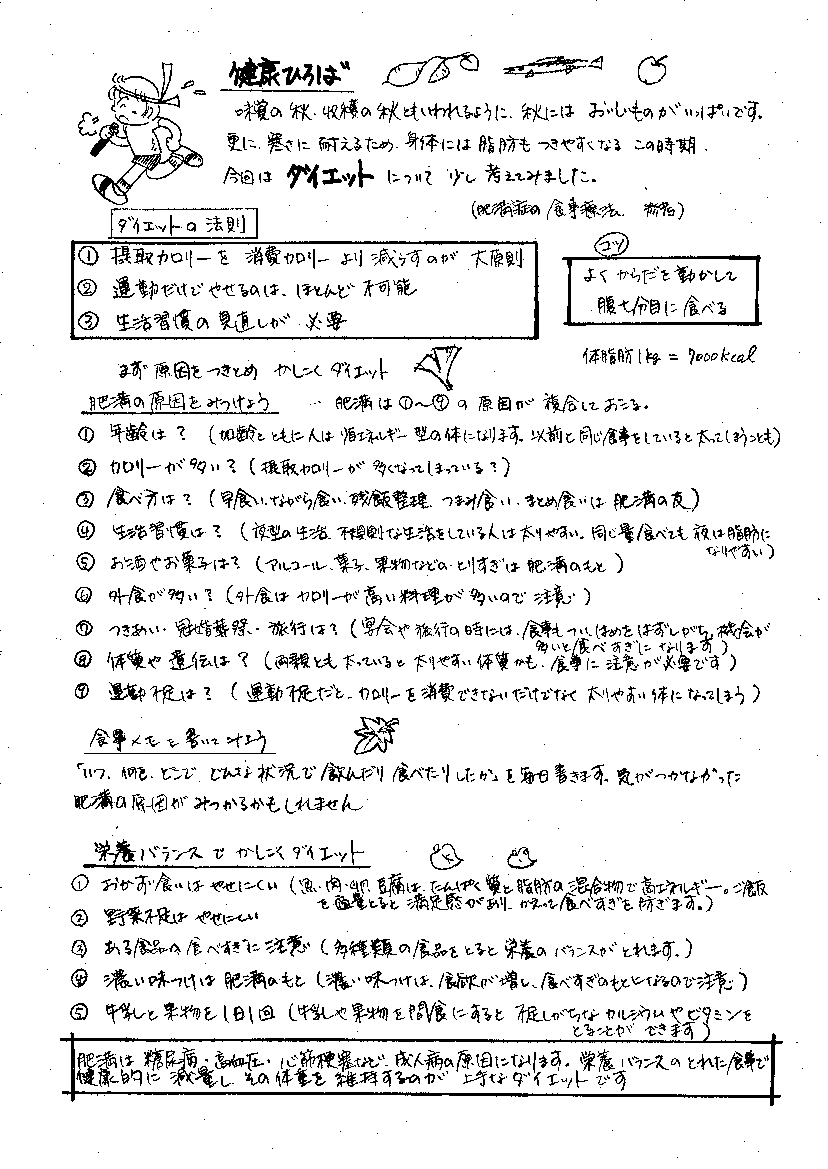 健康ひろば
味覚の秋・収穫の秋ともいわれるように、秋には おいしいものがいっぱいです。
更に、寒さに 耐えるため、身体には 脂肪も つきやすくなる この時期、
今回は ダイエット について 少し 考えてみました。
(肥満症の 食事療法、
ダイエットの法則
① 摂取カロリーを 消費カロリーより 減らすのが 大原則
② 運動だけで やせるのは、ほとんど 不可能
③ 生活習慣の 見直しが 必要
コツ
よく からだを 動かして
腹七分目に 食べる
体脂肪 1kg = 7000kcal
まず 原因をつきとめ かしこく ダイエット
肥満の原因をみつけよう … 肥満は①〜⑨の 原因が 複合しておこる。
① 年齢は? (加齢とともに人は 省エネルギー型の体になります。以前と同じ食事をしていると太ってしまうことも)
② カロリーが多い? (摂取カロリーが 多くなってしまっている?)
③ 食べ方は? (早食い、ながら食い、残飯整理、つまみ食い、まとめ食いは 肥満の友)
④ 生活習慣は? (夜型の生活、不規則な生活をしている人は太りやすい。同じ量食べても 夜は脂肪に
なりやすい)
⑤ お酒やお菓子は? (アルコール、菓子、果物などの とりすぎは 肥満のもと)
⑥ 外食が多い? (外食は カロリーが 高い料理が 多いので 注意)
⑦ つきあい・冠婚葬祭・旅行は? (宴会や旅行の時には、食事も つい、はめをはずしがち。機会が
多いと食べすぎになります)
⑧ 体質や 遺伝は? (両親とも 太っていると 太りやすい体質かも、食事に 注意が必要です)
⑨ 運動不足は? (運動不足だと、カロリーを消費できないだけでなく 太りやすい体になってしまう)
食事メモを書いてみよう
「いつ、何を、どこで、どんな状況で 飲んだり 食べたりしたか」を毎日書きます。気がつかなかった
肥満の原因が みつかるかもしれません
栄養バランスで かしこくダイエット
① おかず食いは やせにくい (魚・肉・卵・豆腐は、たんぱく質と脂肪の混合物で高エネルギー。ご飯
を適量とると 満足感があり、かえって食べすぎを防ぎます。)
② 野菜不足は やせにくい
③ ある食品の 食べすぎに 注意 (多種類の食品をとると 栄養のバランスがとれます。)
④ 濃い味つけは 肥満のもと (濃い味つけは、食欲が増し、食べすぎのもとになるので注意)
⑤ 牛乳と果物を 1日1回 (牛乳や果物を間食にすると 不足しがちな カルシウムやビタミンを
とることが できます)
肥満は 糖尿病・高血圧・心筋梗塞など、成人病の原因になります。栄養バランスのとれた食事で
健康的に 減量し、その体重を 維持するのが 上手なダイエットです